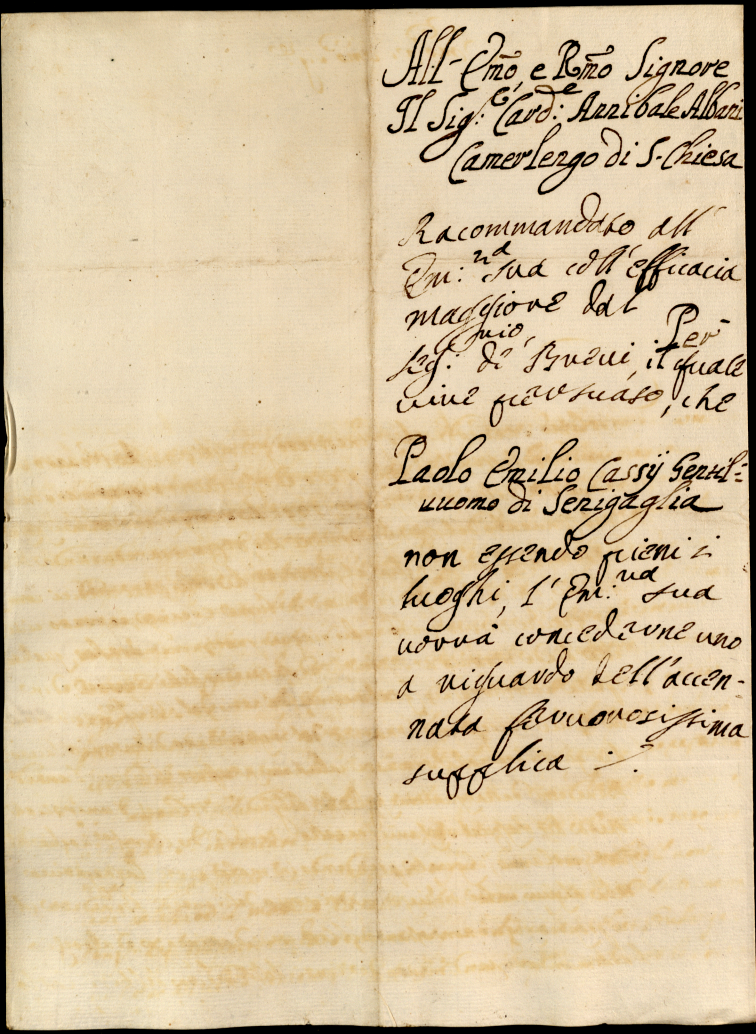 All' Emo, e Rmo Signore
Il Sig.e Card.e Annibale Albani
Camerlengo di S. Chiesa
Racommandato all'
Em:za sua coll'efficacia
maggiore dal
Seg.rio de' Brevi, il quale
vive persuaso, che
Per
Paolo Emilio Cassij Gentil=
uuomo di Senigaglia
non essendo pieni i
luoghi, l'Em:za sua
vorrà concederne uno
a riguardo dell'accen-
nata fervorosissima
supplica